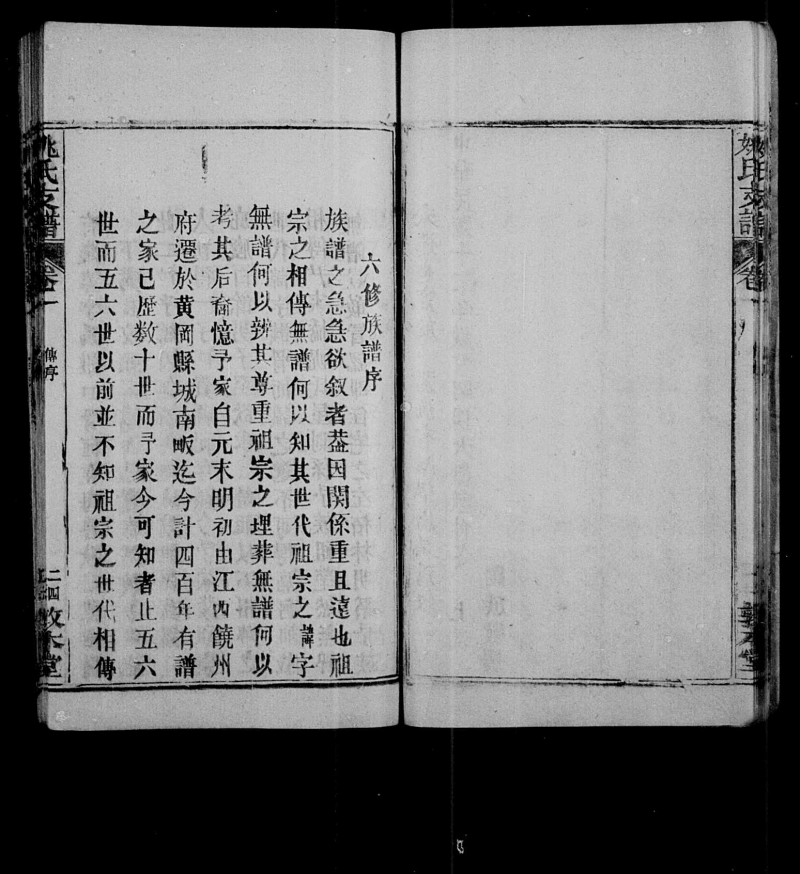 姚氏支譜
卷一
敦本堂
六修族譜序
族譜之急急欲叙者葢因關係重且遠也祖
宗之相傳無譜何以知其世代祖宗之諱字
無譜何以辨其尊重祖宗之埋葬無譜何以
考其后裔憶予家自元末明初由江西饒州
府遷於黄岡縣城南畈迄今計四百年有譜
之家已歷数十世而予家今可知者止五六
世而五六世以前並不知祖宗之世代相傳
姚氏支譜
卷一
傳序
二四
敦本堂